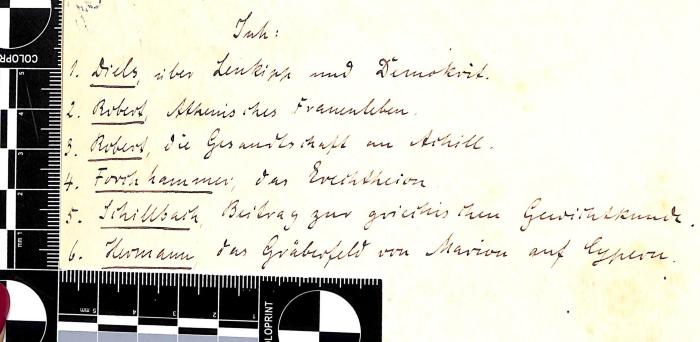 Inh:
1. Diels, über Leukipp und Demokrit.
2. Robert, Athenisches Frauenleben.
3. Robert, die Gesandtschaft an Achill.
4. Forchhammer, das Erechtheion
5. Schillbach, Beitrag zur griechischen Gewichtkunde.
6. Hermann, das Gräberfeld von Marion auf Cypern.
COLOPRINT
5
4
3
2
mm 1
5 mm 4 3 2 1
COLOPRINT